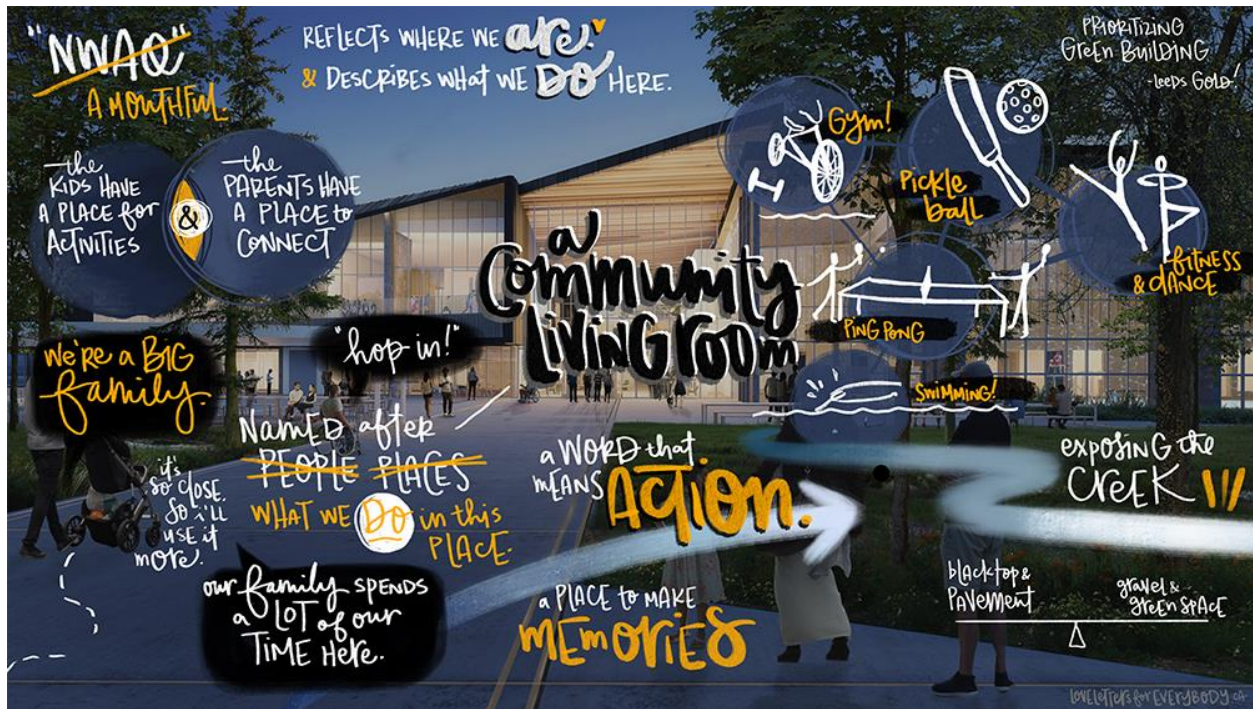 "NWAQ"
A MOUTHFUL.
REFLECTS WHERE WE are.
& DESCRIBES WHAT WE DO HERE.
PRIORITIZING
Green BUILDING
-leeDs GOLD!
-the
KIDS HAVE
A PLACE for
ACTIVITIES
&
-the
PARENTS HAVE
A PLACE to
CONNECT
Gym!
Pickle
ball
fitness
& dANCE
PING PONG
SWIMMING!
a
Community
LIVING room
we're a BIG
family.
"hop in!"
NAMED after
PEOPLE PLACES
WHAT WE DO in this
PLACE.
it's
so close.
So i'll
use it
more.
our family SPENDS
a LOT of our
TIME Here.
a WORD that
MEANS ACTION.
a PLACE to MAKE
MEMORIES
exposing the
Creek
blacktop &
PAVEMENT
gravel &
green SPACE
loveletters for EVERYBODY.ca